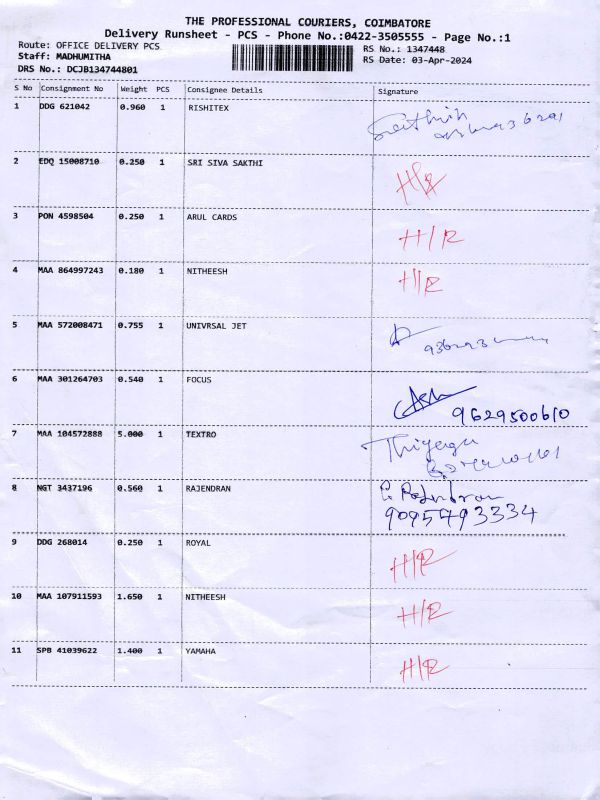 THE PROFESSIONAL COURIERS, COIMBATORE
Delivery Runsheet - PCS - Phone No.:0422-3505555 - Page No.:1
Route: OFFICE DELIVERY PCS RS No.: 1347448
Staff: MADHUMITHA RS Date: 03-Apr-2024
DRS No.: DCJB134744801
S No Consignment No Weight PCS Consignee Details Signature
1 DDG 621042 0.960 1 RISHITEX
2 EDQ 15008710 0.250 1 SRI SIVA SAKTHI H/R
3 PON 4598504 0.250 1 ARUL CARDS H/R
4 MAA 864997243 0.180 1 NITHEESH H/R
5 MAA 572008471 0.755 1 UNIVRSAL JET
6 MAA 301264703 0.540 1 FOCUS 9629500610
7 MAA 104572888 5.000 1 TEXTRO
8 NGT 3437196 0.560 1 RAJENDRAN
9095793334
9 DDG 268014 0.250 1 ROYAL H/R
10 MAA 107911593 1.650 1 NITHEESH H/R
11 SPB 41039622 1.400 1 YAMAHA H/R